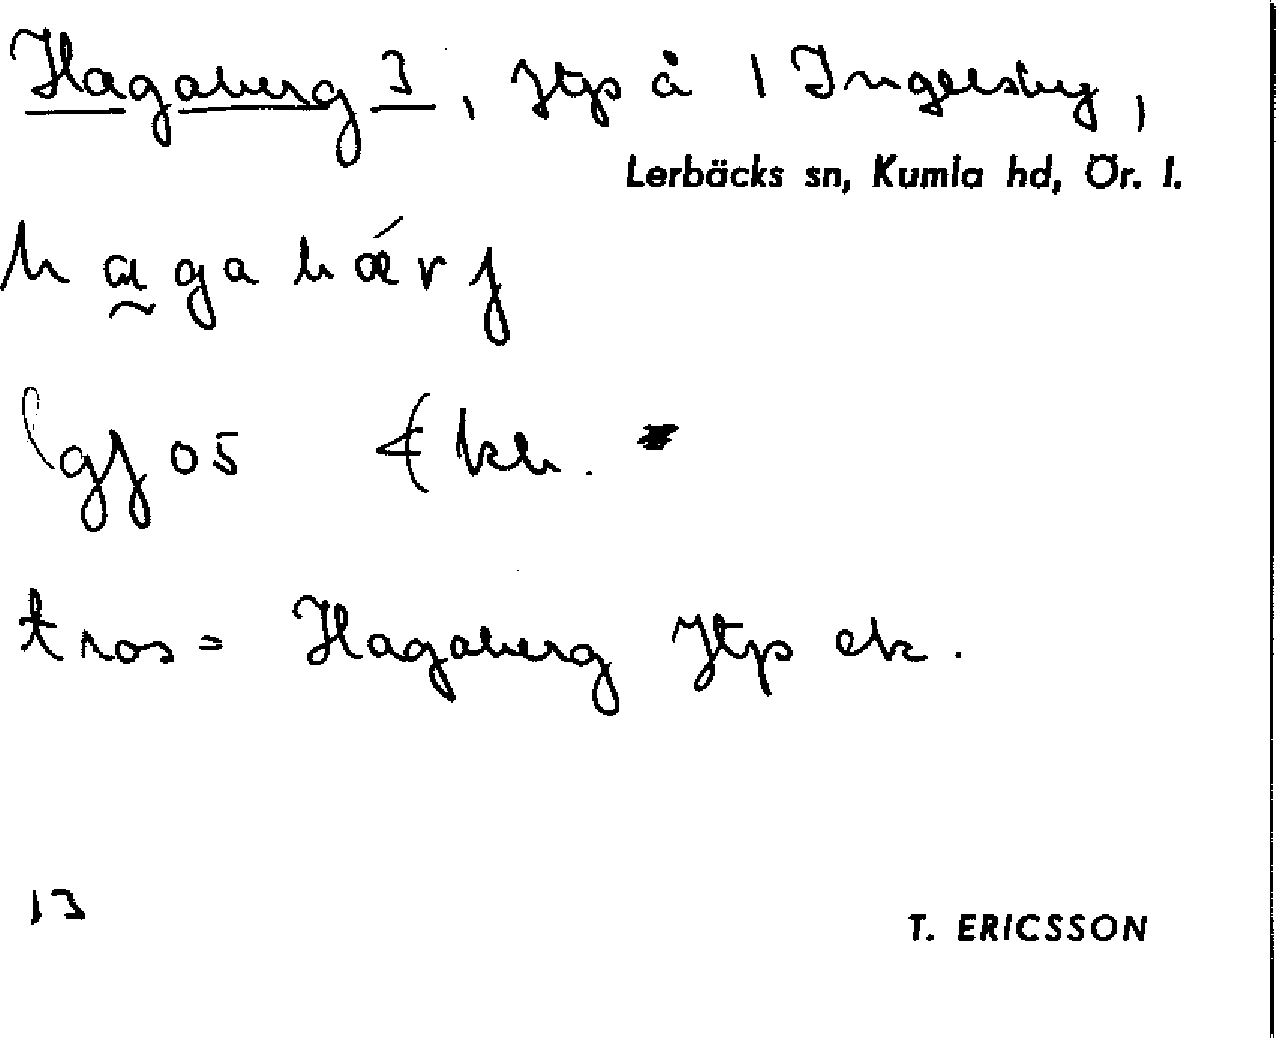 Hagaberg 3, jtp å 1 Ingelsby,
Lerbäcks sn, Kumla hd, Ör. l.
hagabǽrj
05
tros = Hagaberg Jtp ek.
13
T. ERICSSON